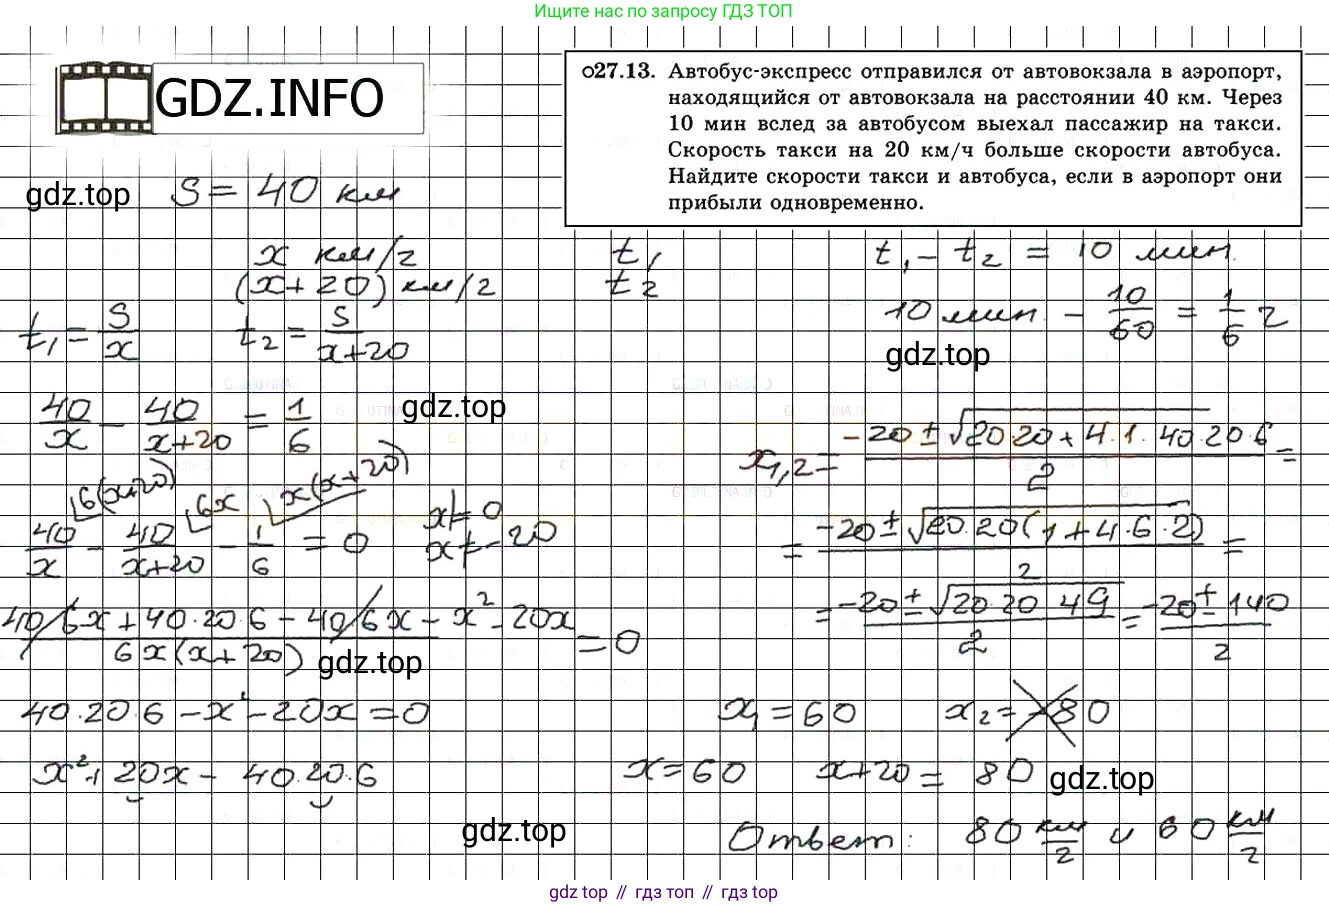 Ищите нас по запросу ГДЗ ТОП
GDZ.INFO
27.13. Автобус-экспресс отправился от автовокзала в аэропорт,
находящийся от автовокзала на расстоянии 40 км. Через
10 мин вслед за автобусом выехал пассажир на такси.
Скорость такси на 20 км/ч больше скорости автобуса.
Найдите скорости такси и автобуса, если в аэропорт они
прибыли одновременно.
gdz.top
S = 40 км
x км/ч t₁ t₁ - t₂ = 10 мин.
(x+20) км/ч t₂
10 мин. - 10/60 = 1/6 ч
t₁ = S/x t₂ = S/(x+20)
gdz.top
40/x - 40/(x+20) = 1/6
gdz.top
40/x ⌊6(x+20) - 40/(x+20) ⌊6x - 1/6 ⌊x(x+20) = 0
x ≠ 0
x ≠ -20
(40·6x + 40·20·6 - 40·6x - x² - 20x)/(6x(x+20)) = 0
gdz.top
40·20·6 - x² - 20x = 0
x² + 20x - 40·20·6
gdz.top
x₁,₂ = (-20 ± √(20·20 + 4·1·40·20·6))/2 =
= (-20 ± √(20·20(1+4·6·2)))/2 =
= (-20 ± √(20·20·49))/2 = (-20 ± 140)/2
x₁ = 60 x₂ = -80
x = 60 x+20 = 80
gdz.top
Ответ: 80 км/ч и 60 км/ч
gdz top // гдз топ // гдз top